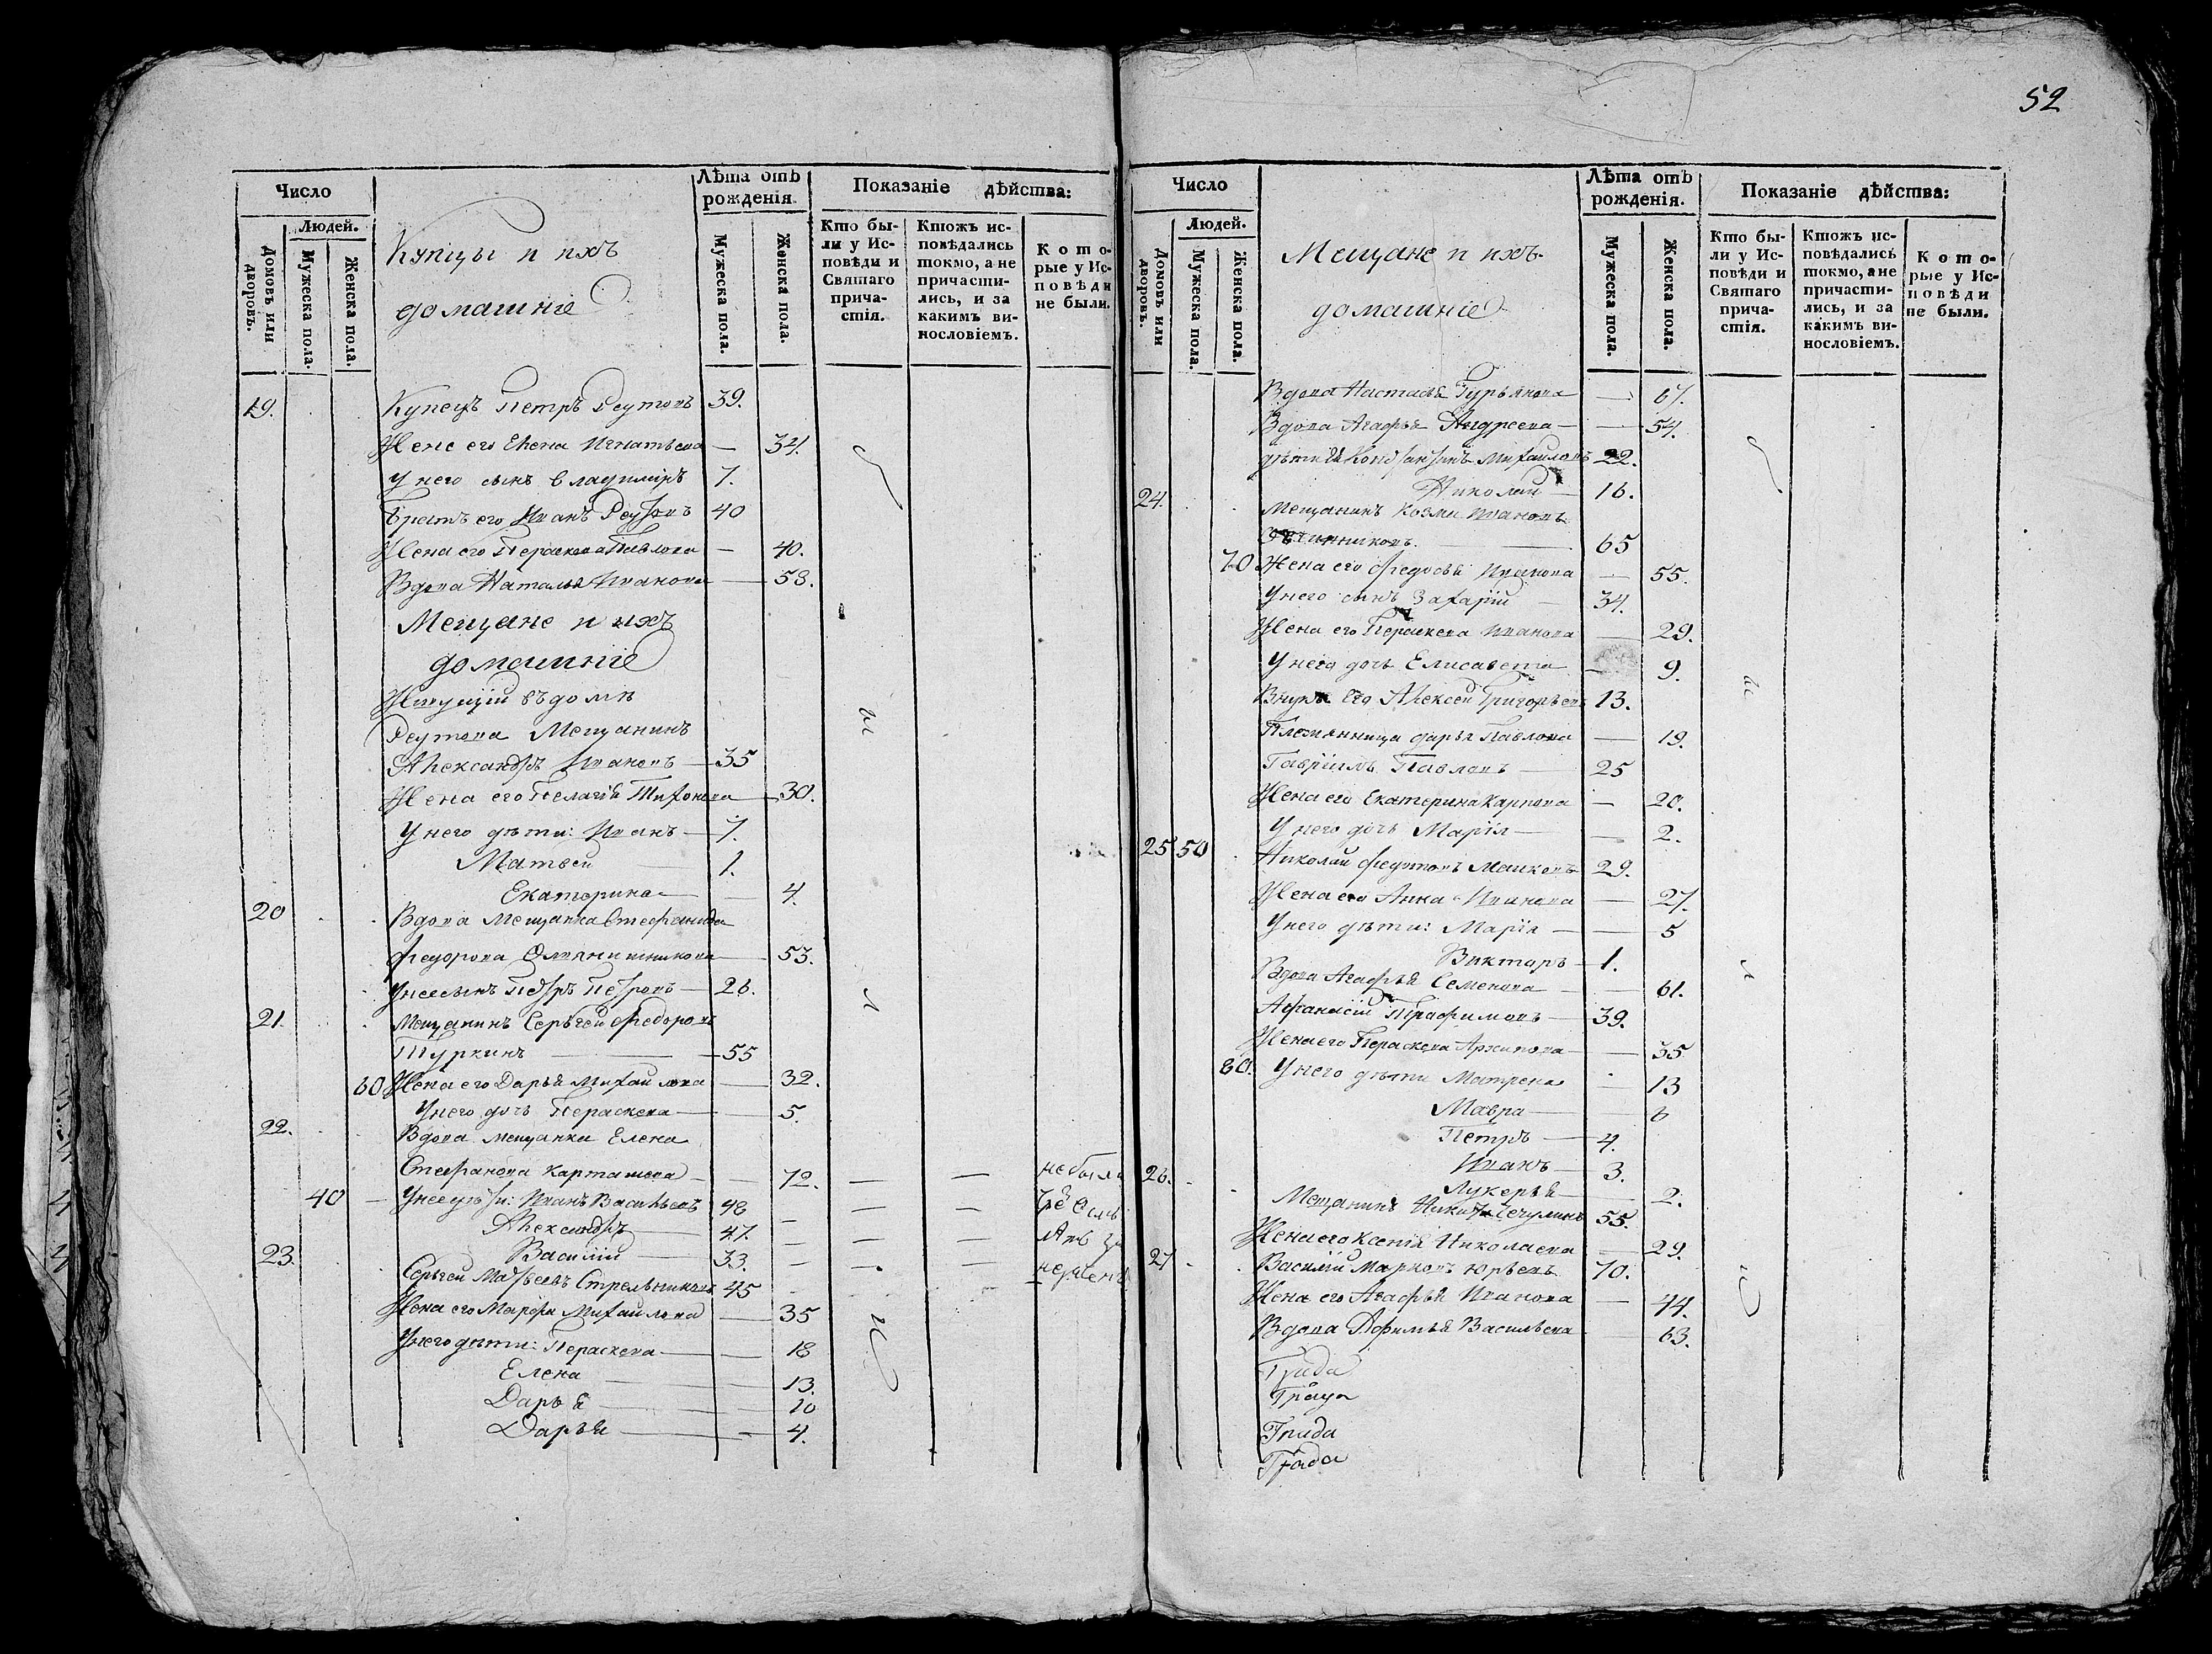 52
Число
Людей.
Домовъ или дворовъ.
Мужеска пола.
Женска пола.
Купцы и ихъ
домашніе
Лѣта отъ рожденія.
Мужеска пола.
Женска пола.
Показаніе дѣйства:
Кто бы-
ли у Ис-
повѣди и
Святаго
прича-
стія.
Ктожъ ис-
повѣдались
токмо, а не
причасти-
лись, и за
какимъ ви-
нословіемъ.
Кото-
рые у Ис-
повѣди
не были.
19. Купецъ Петръ Реутовъ 39.
Жена его Елена Игнатьева — 34.
У него сынъ Владимiръ 7.
Братъ его Иванъ Реутовъ 40
Жена его Пераскева Павлова — 40.
Вдова Наталья Иванова — 58.
Мещане и ихъ
домашніе
Живущій въ домѣ
Реутова Мещанинъ
Александръ Ивановъ — 35
Жена его Пелагія Тихонова — 30.
У него дѣти: Иванъ — 7.
Матвей 1.
Екатерина — 4.
20 Вдова Мещанка Стефанида
Федорова — 53.
У нее сынъ Петръ Петровъ — 26.
21. Мещанинъ Сергей Федоровъ
Туркинъ — 55
60 Жена его Дарья Михайлова — 32.
У него дочь Пераскева — 5.
22. Вдова мещанка Елена
Стефанова Карташева — 72. — — не были
40 — У нее дѣти: Иванъ Васильевъ 48 — — —
Александръ — 47. — — —
Василій — 33. — — —
23. Сергей Матвеевъ Стрельниковъ 45
Жена его Марфа Михайлова — 35
У него дѣти: Пераскева — 18
Елена — 13.
Дарья — 10
Дарья — 4.
Число
Людей.
Домовъ или дворовъ.
Мужеска пола.
Женска пола.
Мещане и ихъ
домашніе
Лѣта отъ рожденія.
Мужеска пола.
Женска пола.
Показаніе дѣйства:
Кто бы-
ли у Ис-
повѣди и
Святаго
прича-
стія.
Ктожъ ис-
повѣдались
токмо, а не
причасти-
лись, и за
какимъ ви-
нословіемъ.
Кото-
рые у Ис-
повѣди
не были.
Вдова Настасья Гурьянова — 67.
Вдова Агафья Андреева — 54.
дѣти ея Константинъ Михайловъ 22.
Николай — 16.
24. Мещанинъ Козма Ивановъ
65
70 Жена его Федосья Иванова — 55.
У него сынъ Захарій — 34.
Жена его Пераскева Иванова — 29.
У него дочь Елисавета — 9.
Внукъ его Алексей Григорьевъ 13.
Племянница дарья Павлова — 19.
Гавріилъ Павловъ — 25
Жена его Екатерина Карпова — 20.
У него дочь Марія — 2.
25 50 Николай Машковъ 29.
Жена его Анна Иванова — 27.
У него дѣти: Марія — 5
Викторъ — 1.
Вдова Агафья Семенова — 61.
Афанасій Трафимовъ — 39.
Жена его Пераскева Архипова — 35
80. У него дѣти Матрена — 13
Мавра — 6
Петръ — 4.
Иванъ — 3.
26. Лукерья — 2.
Мещанинъ Никита 55.
Жена его Ксенія Николаева — 29.
27 Василій Марковъ Юрьевъ 70.
Жена его Агафья Иванова — 44.
Вдова Афимья Васильева — 63.